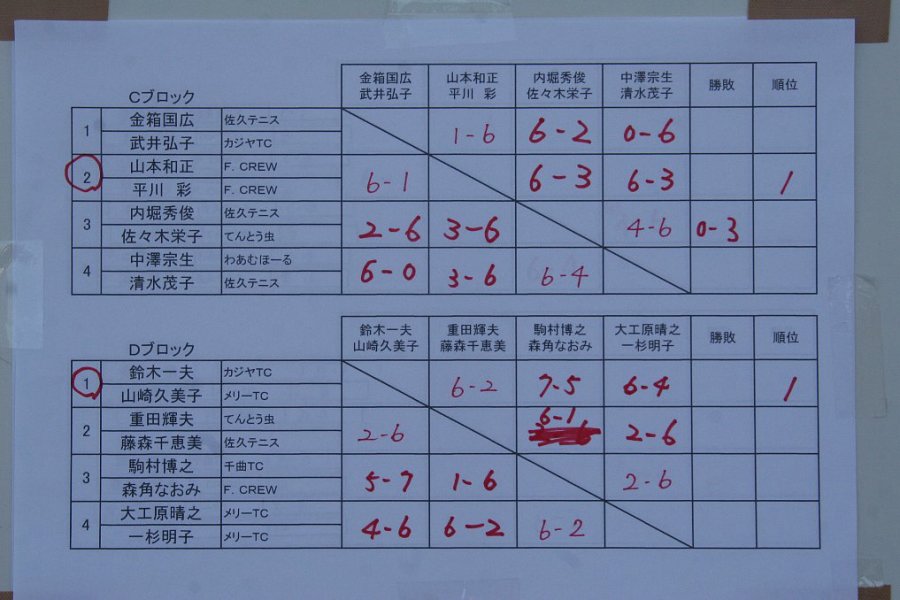 Cブロック
金箱国広 山本和正 内堀秀俊 中澤宗生 勝敗 順位
武井弘子 平川 彩 佐々木栄子 清水茂子
1 金箱国広 佐久テニス 1-6 6-2 0-6
武井弘子 カジヤTC
2 山本和正 F. CREW 6-1 6-3 6-3 1
平川 彩 F. CREW
3 内堀秀俊 佐久テニス 2-6 3-6 4-6 0-3
佐々木栄子 てんとう虫
4 中澤宗生 わあむほーる 6-0 3-6 6-4
清水茂子 佐久テニス
Dブロック
鈴木一夫 重田輝夫 駒村博之 大工原晴之 勝敗 順位
山崎久美子 藤森千恵美 森角なおみ 一杉明子
1 鈴木一夫 カジヤTC 6-2 7-5 6-4 1
山崎久美子 メリーTC
2 重田輝夫 てんとう虫 2-6 6-1 2-6
藤森千恵美 佐久テニス
3 駒村博之 千曲TC 5-7 1-6 2-6
森角なおみ F. CREW
4 大工原晴之 メリーTC 4-6 6-2 6-2
一杉明子 メリーTC